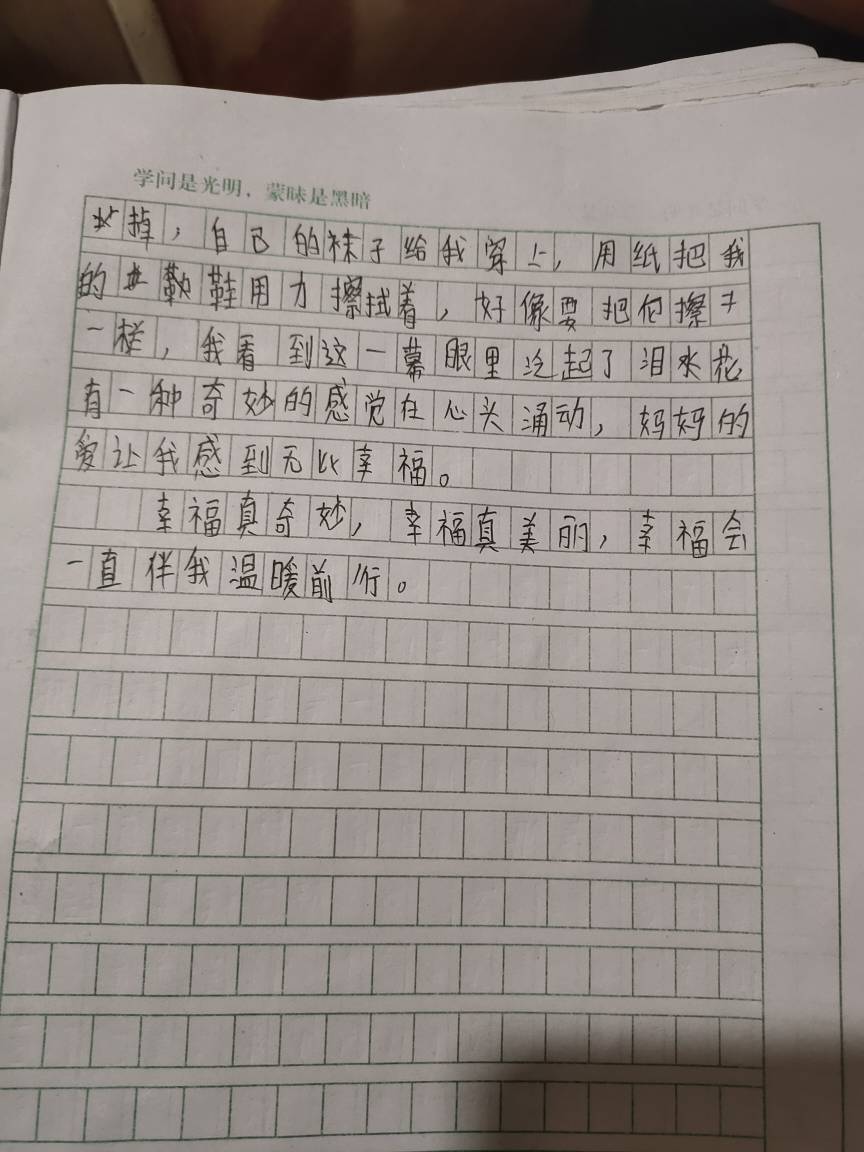 学问是光明，蒙昧是黑暗
掉，自己的袜子给我穿上，用纸把我
的鞋用力擦拭着，好像要把他擦干
一样，我看到这一幕眼里泛起了泪水花
有一种奇妙的感觉在心头涌动，妈妈的
爱让我感到无比幸福。
幸福真奇妙，幸福真美丽，幸福会
一直伴我温暖前行。